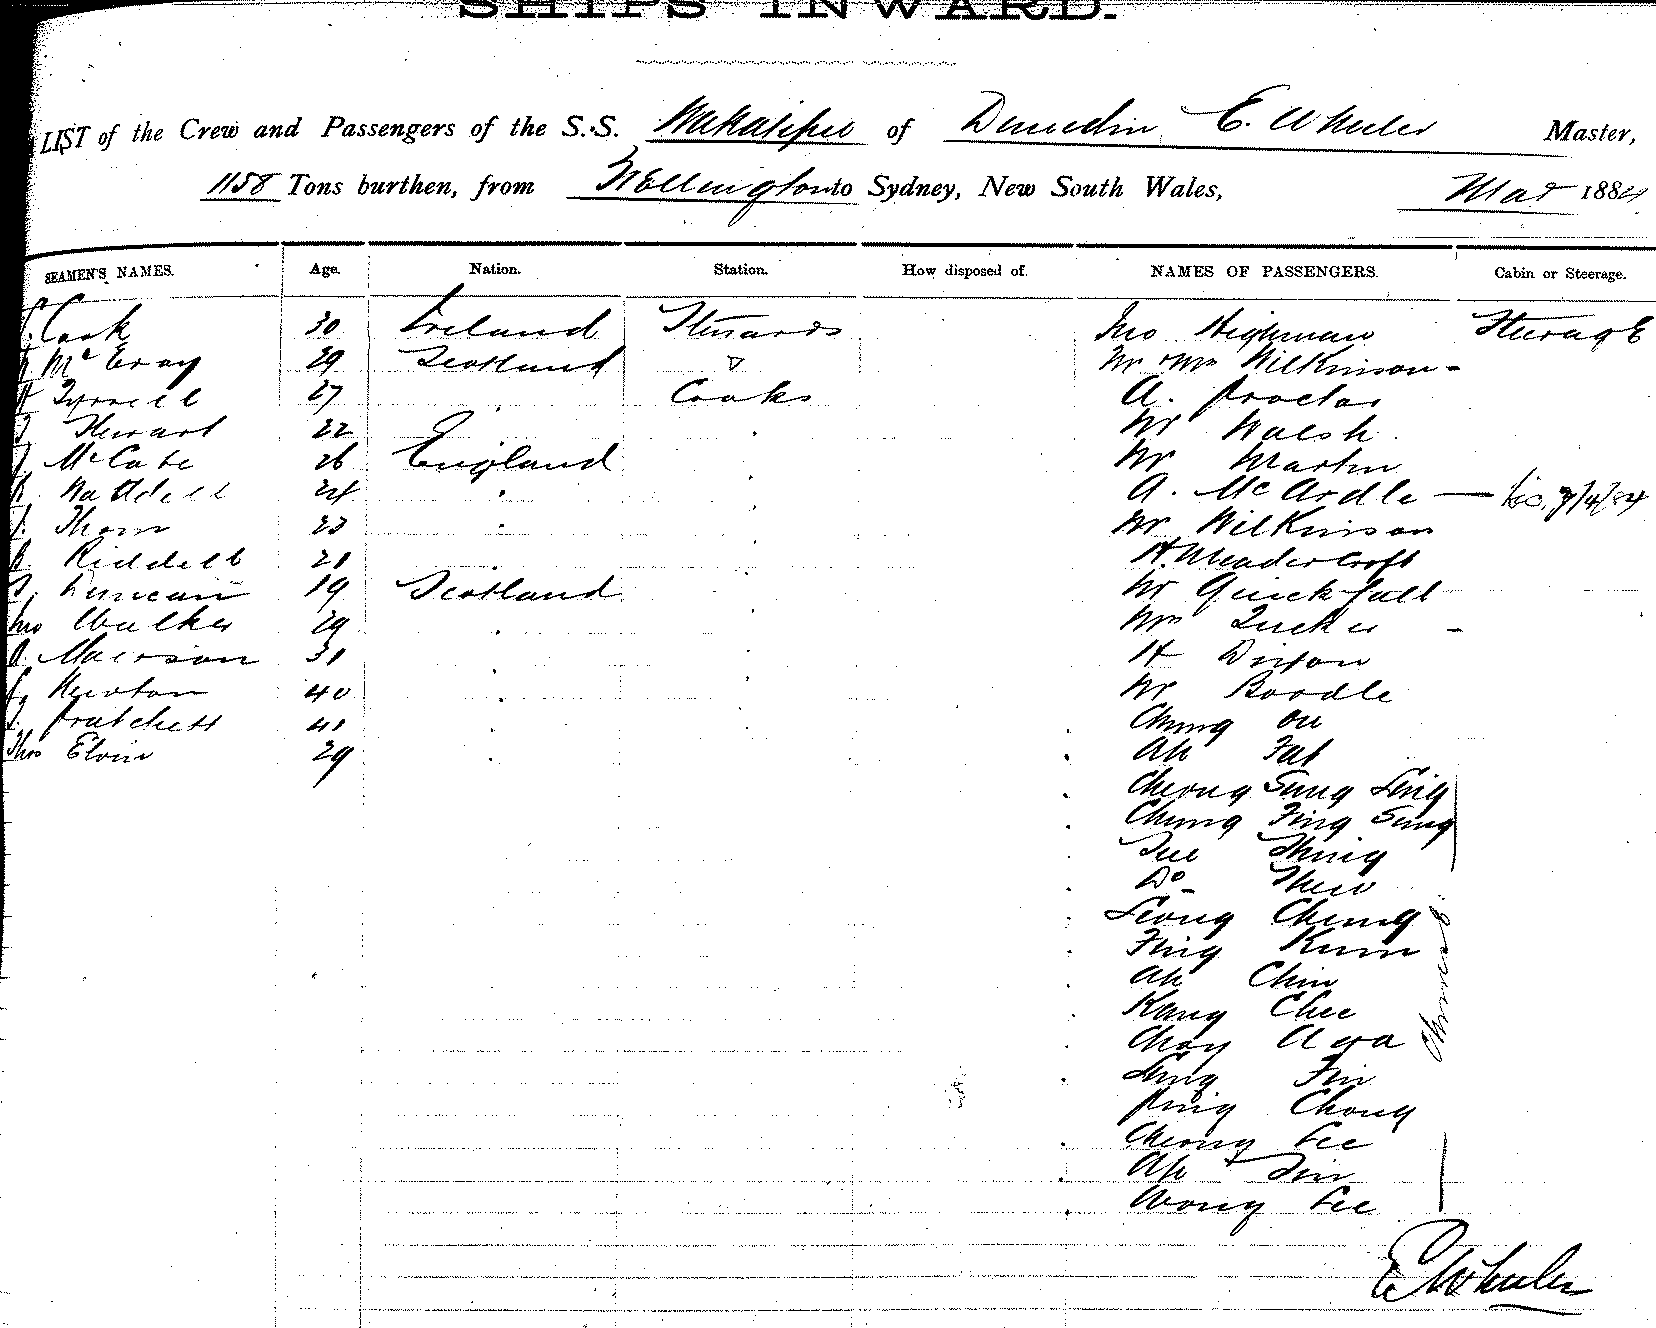 SHIPS INWARD.
LIST of the Crew and Passengers of the S.S. Wakatipu of Dunedin E. Wheeler Master,
1158 Tons burthen, from Wellington to Sydney, New South Wales, Mar 1884
SEAMEN'S NAMES. Age. Nation. Station. How disposed of. NAMES OF PASSENGERS. Cabin or Steerage.
Cook 30 Ireland Stewards Jno Highman Steerage
McEvoy 29 Scotland Do Mr & Mrs Wilkinson
Tyrrell 27 " Cooks A. Proctor
Stewart 22 " " Mr Walsh
McCabe 26 England Mr Martin
Waddell 24 " A. McArdle — 7/4/84
Thom 23 " Mr Wilkinson
Riddell 21 H. Meadowcroft
Duncan 19 Scotland Mr Quickfall
Jno Walker 29 " Mrs Tucker
Morrison 31 " H Dixon
Newton 40 " Mr Boodle
Pratchett 41 " Chung On
Thos Elvin 29 " Ah Fat
Cheong Sung Ling
Chung Fing Sung
Sue Thing
Do Thew
Leong Cheung
Fing Kum
Ah Chin
Kang Chee
Choy Awa
Sing Fin
Ping Chong
Cheong Lee
Ah Tin
Wong Lee
Chinese
E Wheeler